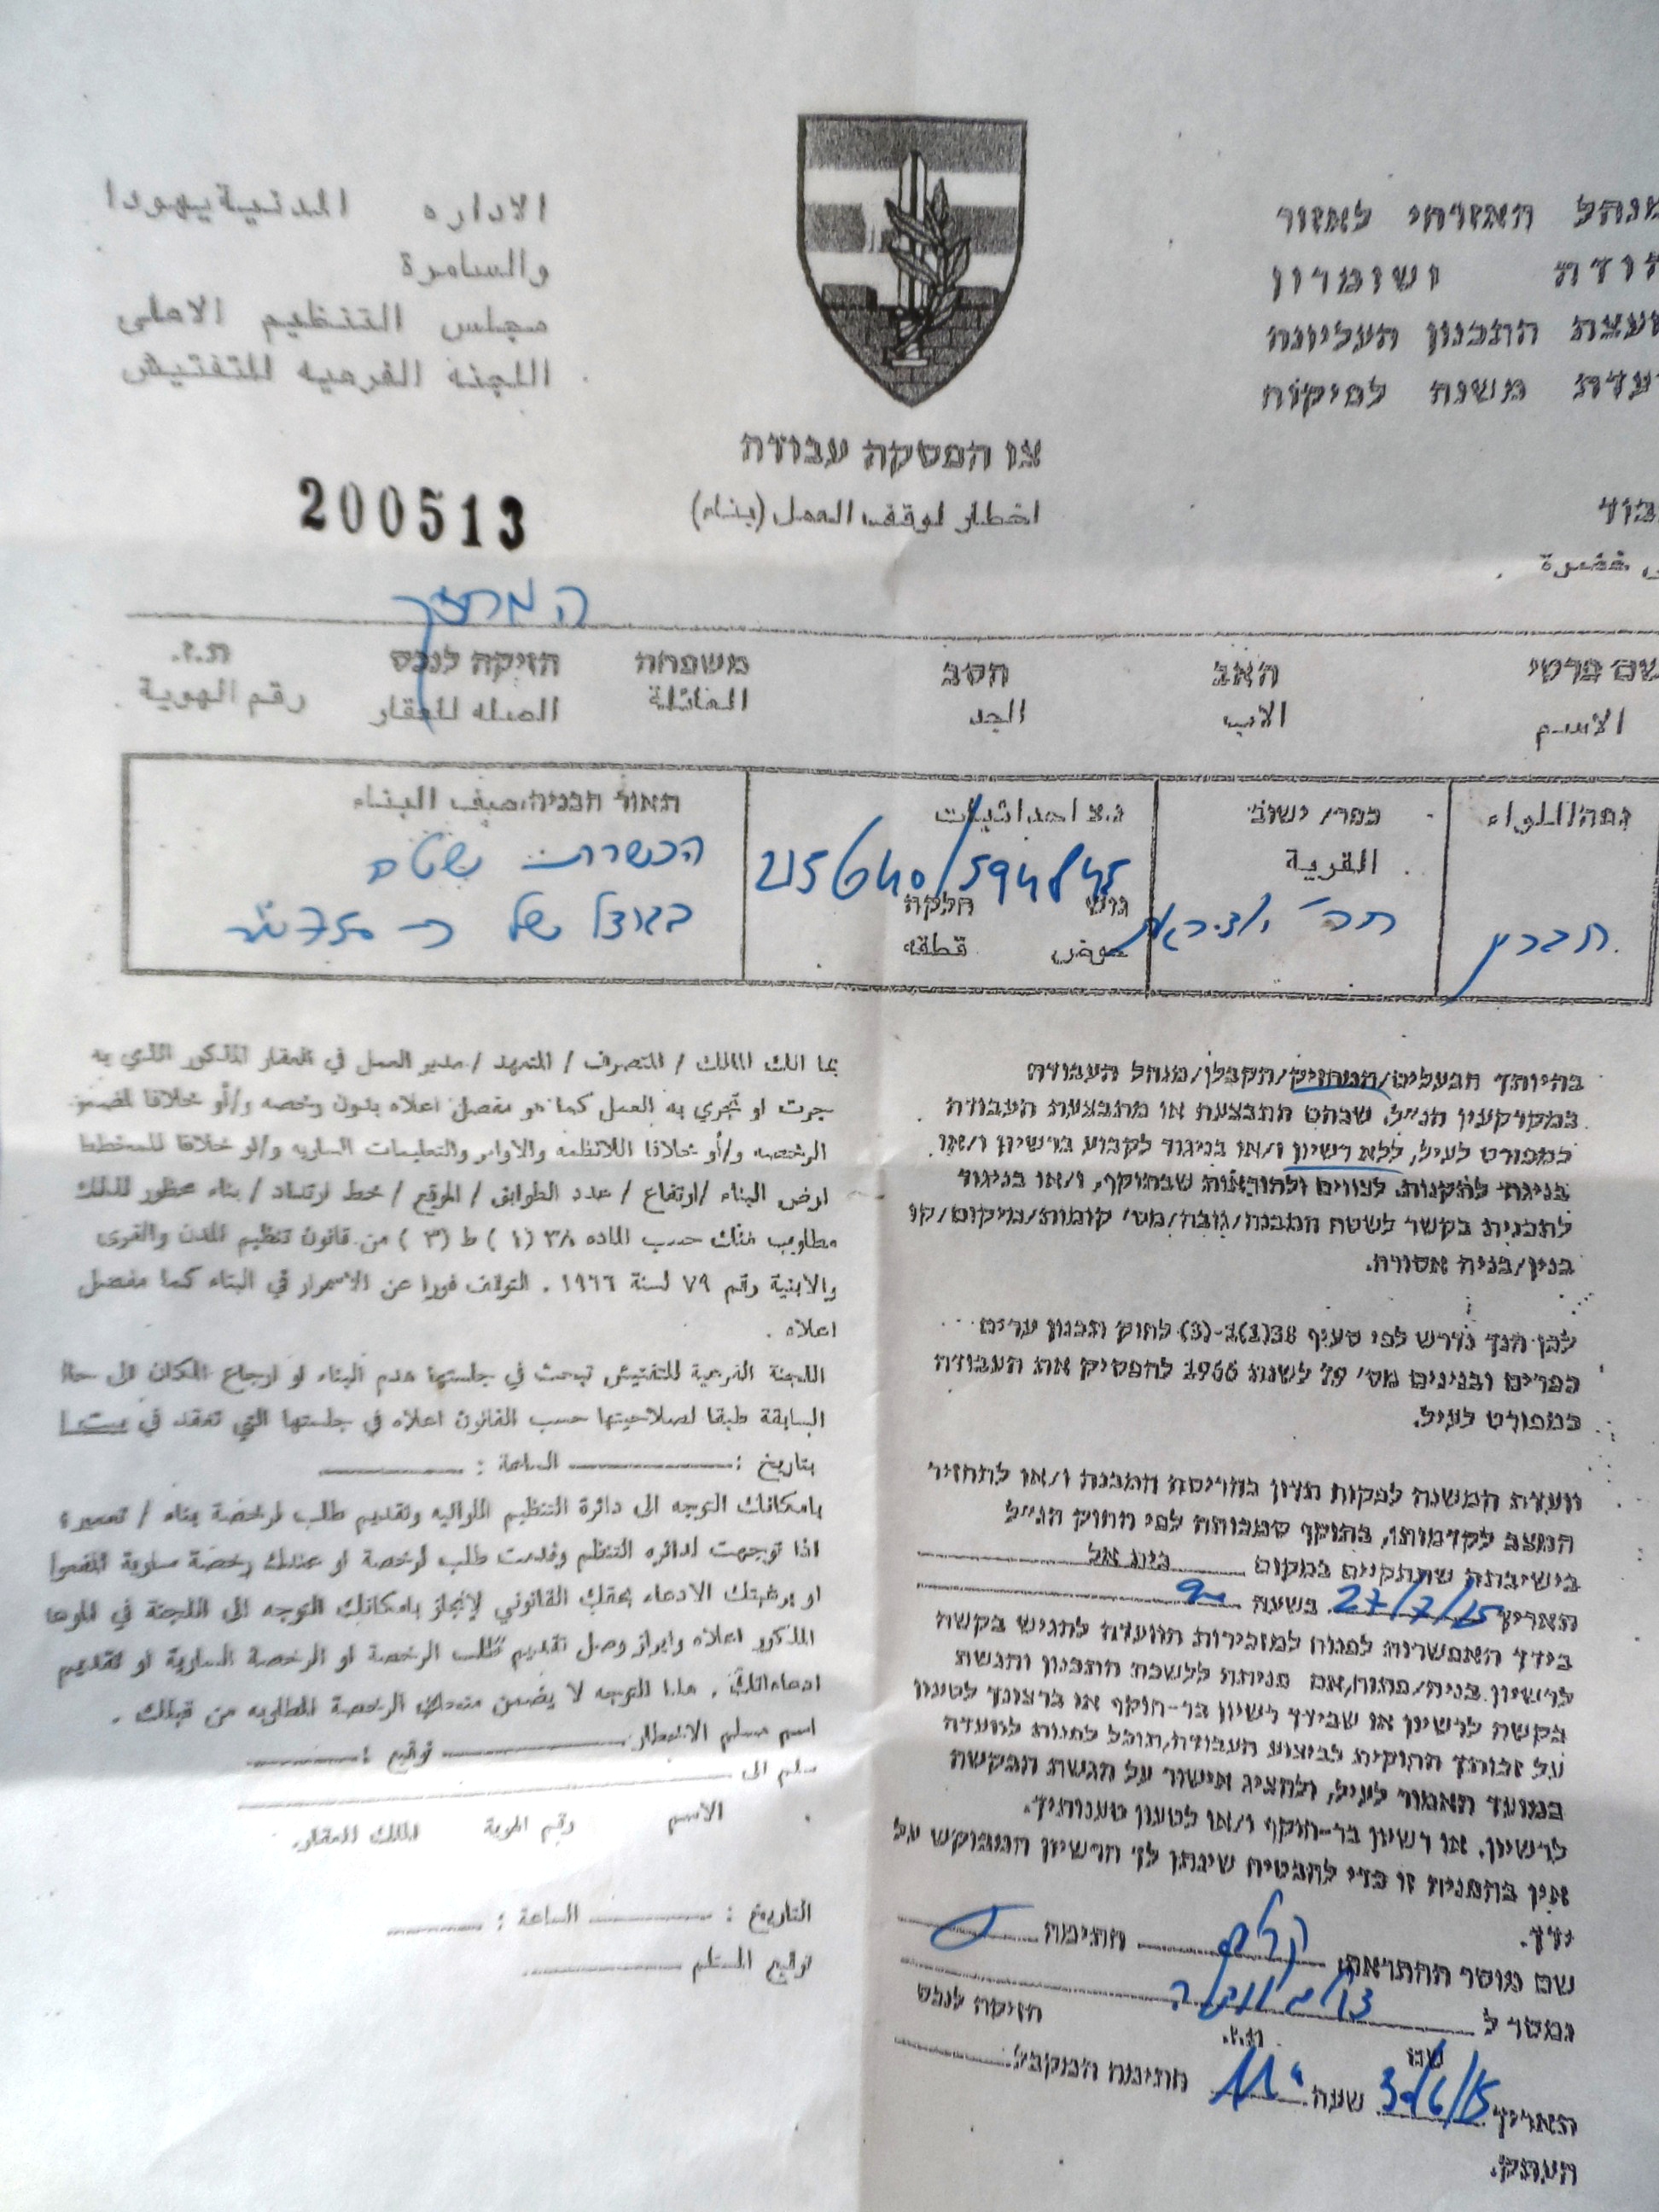 האזרחי לאזור
ושומרון
התכנון העליונה
משנה לפיקוח
الاداره المدنية يهودا
والسامرة
مجلس التنظيم الاعلى
اللجنه الفرعيه للتفتيش
צו הפסקה עבודה
اخطار لوقف العمل (بناء)
200513
המחזיק
שם פרטי האב הסב משפחה הזיקה לנכס ת.ז.
الاسم الاب الجد العائلة الصله للعقار رقم الهوية
נפה/اللواء
חברון
כפר/ישוב
القرية
נ.צ احداثيات
215640/594845
גוש חלקה
حوض قطقه
תאור הבניה/صيف البناء
הכשרת שטח
בגודל של כ-750
בהיותך הבעלים/המחזיק/הקבלן/מנהל העבודה
במקרקעין הנ״ל, שבהם התבצעת או מתבצעת העבודה
כמפורט לעיל, ללא רשיון ו/או בניגוד לקבוע ברשיון ו/או
בניגוד לתקנות, לצווים ולהוראות שבתוקף, ו/או בניגוד
לתכנית בקשר לשטח המבנה/גובה/מס׳ קומות/מיקום/קו
בנין/בניה אסורה.
לכן הנך נדרש לפי סעיף 38(1)-(3) לחוק תכנון ערים
כפרים ובנינים מס׳ 79 לשנת 1966 להפסיק את העבודה
כמפורט לעיל.
וועדת המשנה לפקוח תדון בהריסת המבנה ו/או להחזיר
המצב לקדמותו, בתוקף סמכותה לפי החוק הנ״ל
בישיבתה שתתקיים במקום בית אל
תאריך 27/7/15 בשעה
בידך האפשרות לפנות למזכירות הוועדה להגיש בקשה
לרשיון בניה/פתוח, אם פניתה ללשכת התכנון והגשת
בקשה לרשיון או שבידך רשיון בר-תוקף או ברצונך לטעון
על זכותך החוקית לביצוע העבודה, תוכל לפנות לוועדה
במועד האמור לעיל, ולהציג אישור על הגשת הבקשה
לרשיון, או רשיון בר-תוקף ו/או לטעון טענותיך.
אין בהפניה זו כדי להבטיח שינתן לך הרשיון המבוקש על
ידך.
שם מוסר ההתראה חתימה
נמסר ל
שם ת.ז. הזיקה לנכס
תאריך 30/6/15 שעה חתימת המקבל
העתק.
بما انك المالك / المتصرف / المتعهد / مدير العمل في العقار المذكور الذي به
جرت او تجري به العمل كما هو مفصل اعلاه بدون رخصه و/أو خلافا
الرخصه و/أو خلافا للانظمه والاوامر والتعليمات الساريه و/او خلافا للمخطط
ارض البناء / ارتفاع / عدد الطوابق / الموقع / خط ارتداد / بناء محظور لذلك
مطلوب منك حسب الماده ٣٨ (١) ط (٣) من قانون تنظيم المدن والقرى
والابنية رقم ٧٩ لسنة ١٩٦٦ . التوقف فورا عن الاسمرار في البناء كما مفصل
اعلاه .
اللجنة الفرعية للتفتيش تبحث في جلستها هدم البناء او ارجاع المكان
السابقة طبقا لصلاحيتها حسب القانون اعلاه في جلستها التي تعقد في
بتاريخ : الساعة :
بامكانك التوجه الى دائرة التنظيم اللوائيه وتقديم طلب لرخصة بناء /
اذا توجهت لدائره التنظم وقدمت طلب لرخصة او عندك رخصة سارية
او برغبتك الادعاء بحقك القانوني لإنجاز بامكانك التوجه الى اللجنة في
المذكور اعلاه وابراز وصل تقديم طلب الرخصة او الرخصة السارية او تقديم
ادعاءاتك . هذا التوجه لا يضمن منحك الرخصة المطلوبه من قبلك .
اسم مسلم الاخطار توقيع :
سلم الى
الاسم رقم الهوية المالك للعقار
التاريخ : الساعة :
توقيع المستلم